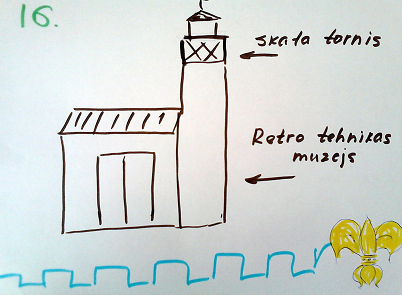 16.
skata tornis
Retro tehnikas
muzejs